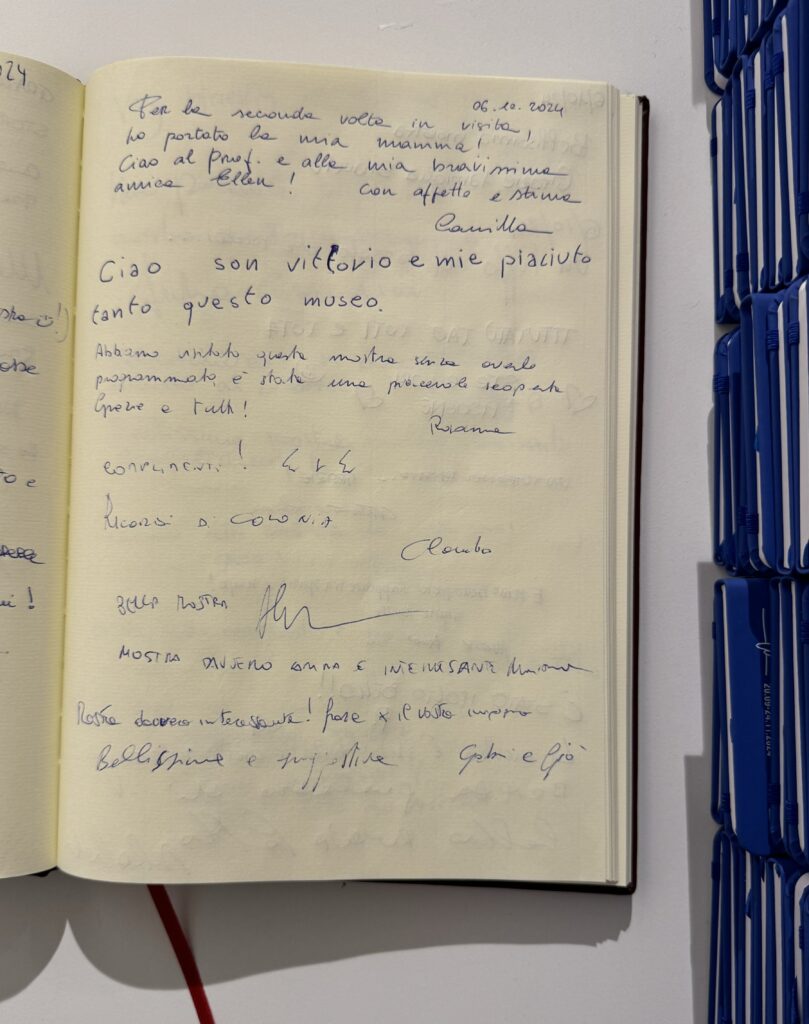 024
06.10.2024
Per la seconda volta in visita,
ho portato la mia mamma!
Ciao al Prof. e alla mia bravissima
amica Ellen! Con affetto e stima
Camilla
Ciao son vittorio e mie piaciuto
tanto questo museo.
Abbiamo visitato questa mostra senza averla
programmata, è stata una piacevole scoperta
Grazie a tutti!
Rosanna
COMPLIMENTI!
RICORDI DI COLONIA
BELLA MOSTRA
MOSTRA DAVVERO E INTERESSANTE
Mostra davvero interessante! grazie x il vostro impegno
Bellissima e suggestiva Gabri e Giò
to e
!
20.09-24.11.2024